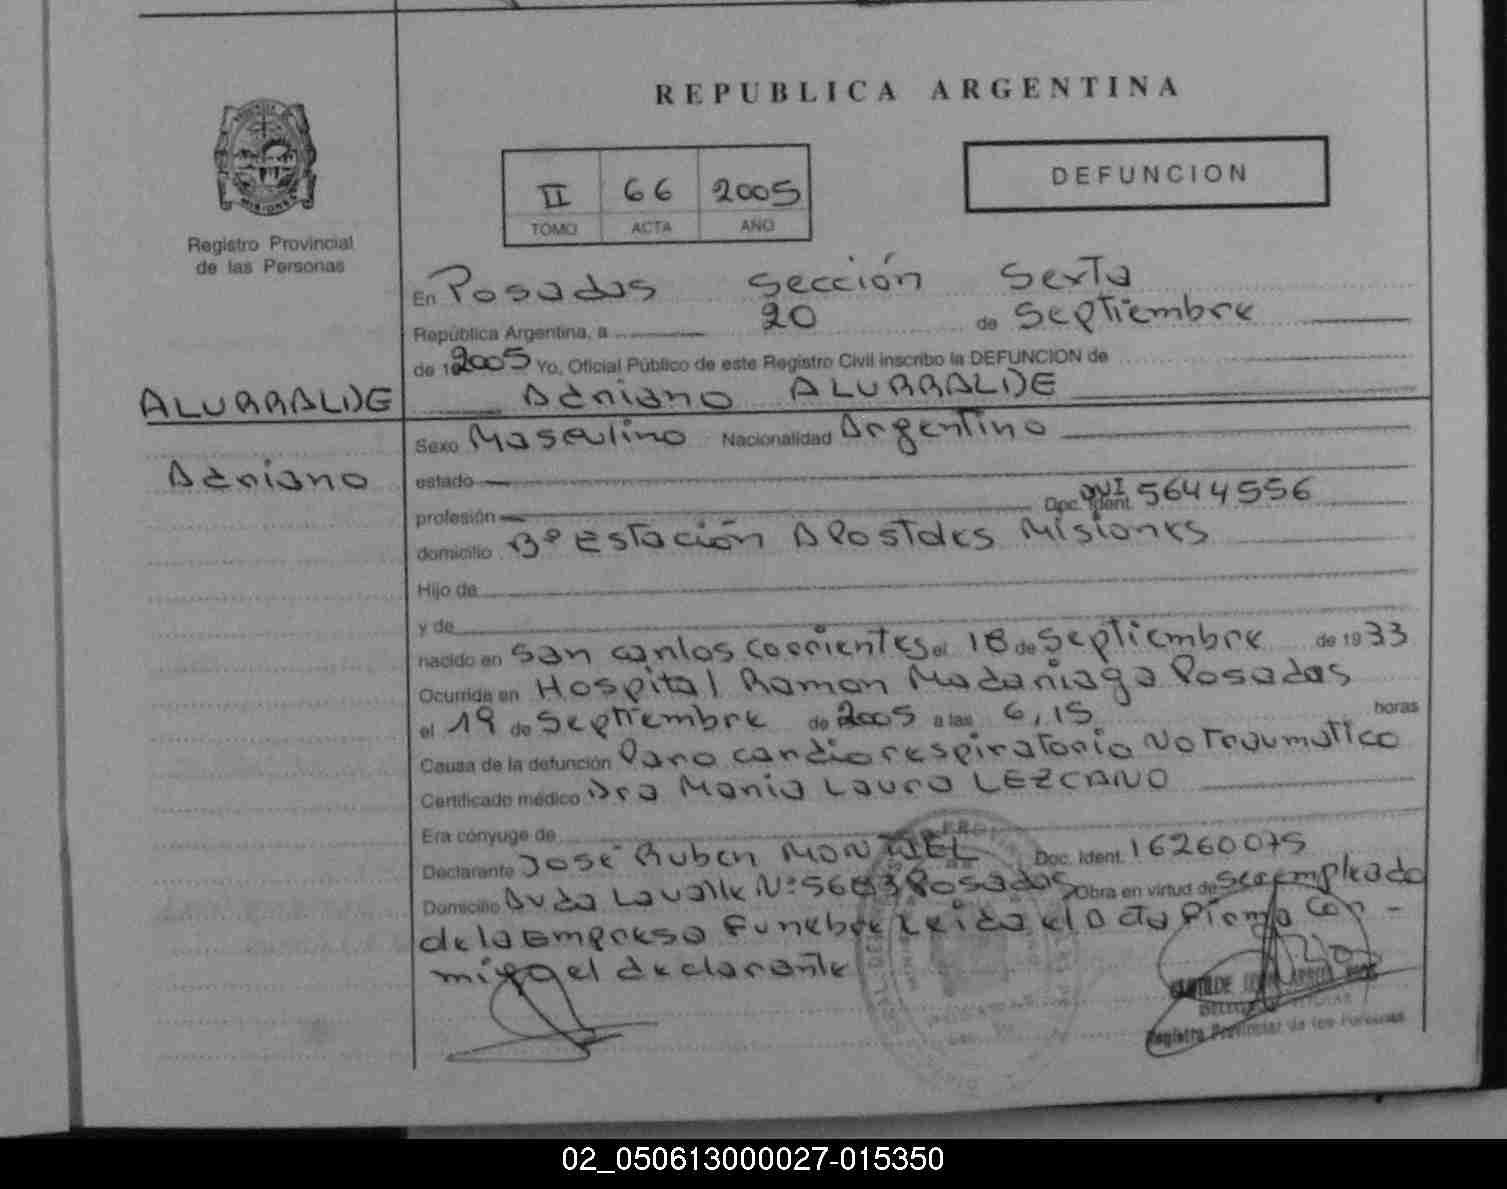 REPUBLICA ARGENTINA
II 66 2005
TOMO ACTA AÑO
DEFUNCION
Registro Provincial
de las Personas
En Posadas Sección Sexta
República Argentina, a 20 de Septiembre
de 2005 Yo, Oficial Público de este Registro Civil inscribo la DEFUNCION de
ALURRALDE
Adriano ALURRALDE
Adriano
Sexo Masculino Nacionalidad Argentino
estado
profesión Doc. Ident. DNI 5644556
domicilio Bº Estación Apostoles Misiones
Hijo de
y de
nacido en San Carlos Corrientes el 18 de Septiembre de 1933
Ocurrida en Hospital Ramon Madariaga Posadas
el 19 de Septiembre de 2005 a las 6,15 horas
Causa de la defunción Paro cardiorespiratorio No Traumatico
Certificado médico Dra Maria Laura LEZCANO
Era cónyuge de
Declarante José Ruben MONTIEL Doc. Ident. 16260075
Domicilio Avda Lavalle Nº Posadas Obra en virtud de ser empleado
de la Empresa Funebre Leida el Acta Firma con-
migo el declarante
Registro Provincial de las Personas
02_050613000027-015350